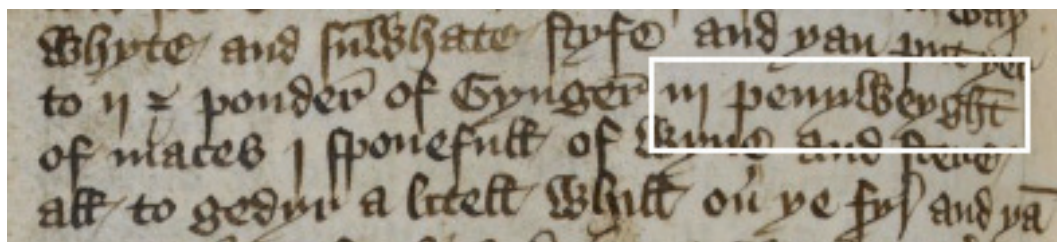 whyte and sūwhate styfe and yan put yer
to ij ℥ ponder̄ of Gynger̄ iij penyweyght
of maces j sponefull of wyne and steue
all to gedyr a lctell whill on̄ ye fyr and yā